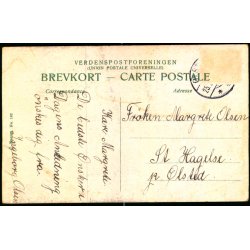 VERDENSPOSTFORENINGEN
(UNION POSTALE UNIVERSELLE)
BREVKORT – CARTE POSTALE
Correspondance.
Adresse
Kære Margrete
De bedste Ønsker i
Dagens Anledning
ønskes dig fra
Ingeborg Olsen
Frøken Margrete Olsen
St Hagelse
p. Ølsted